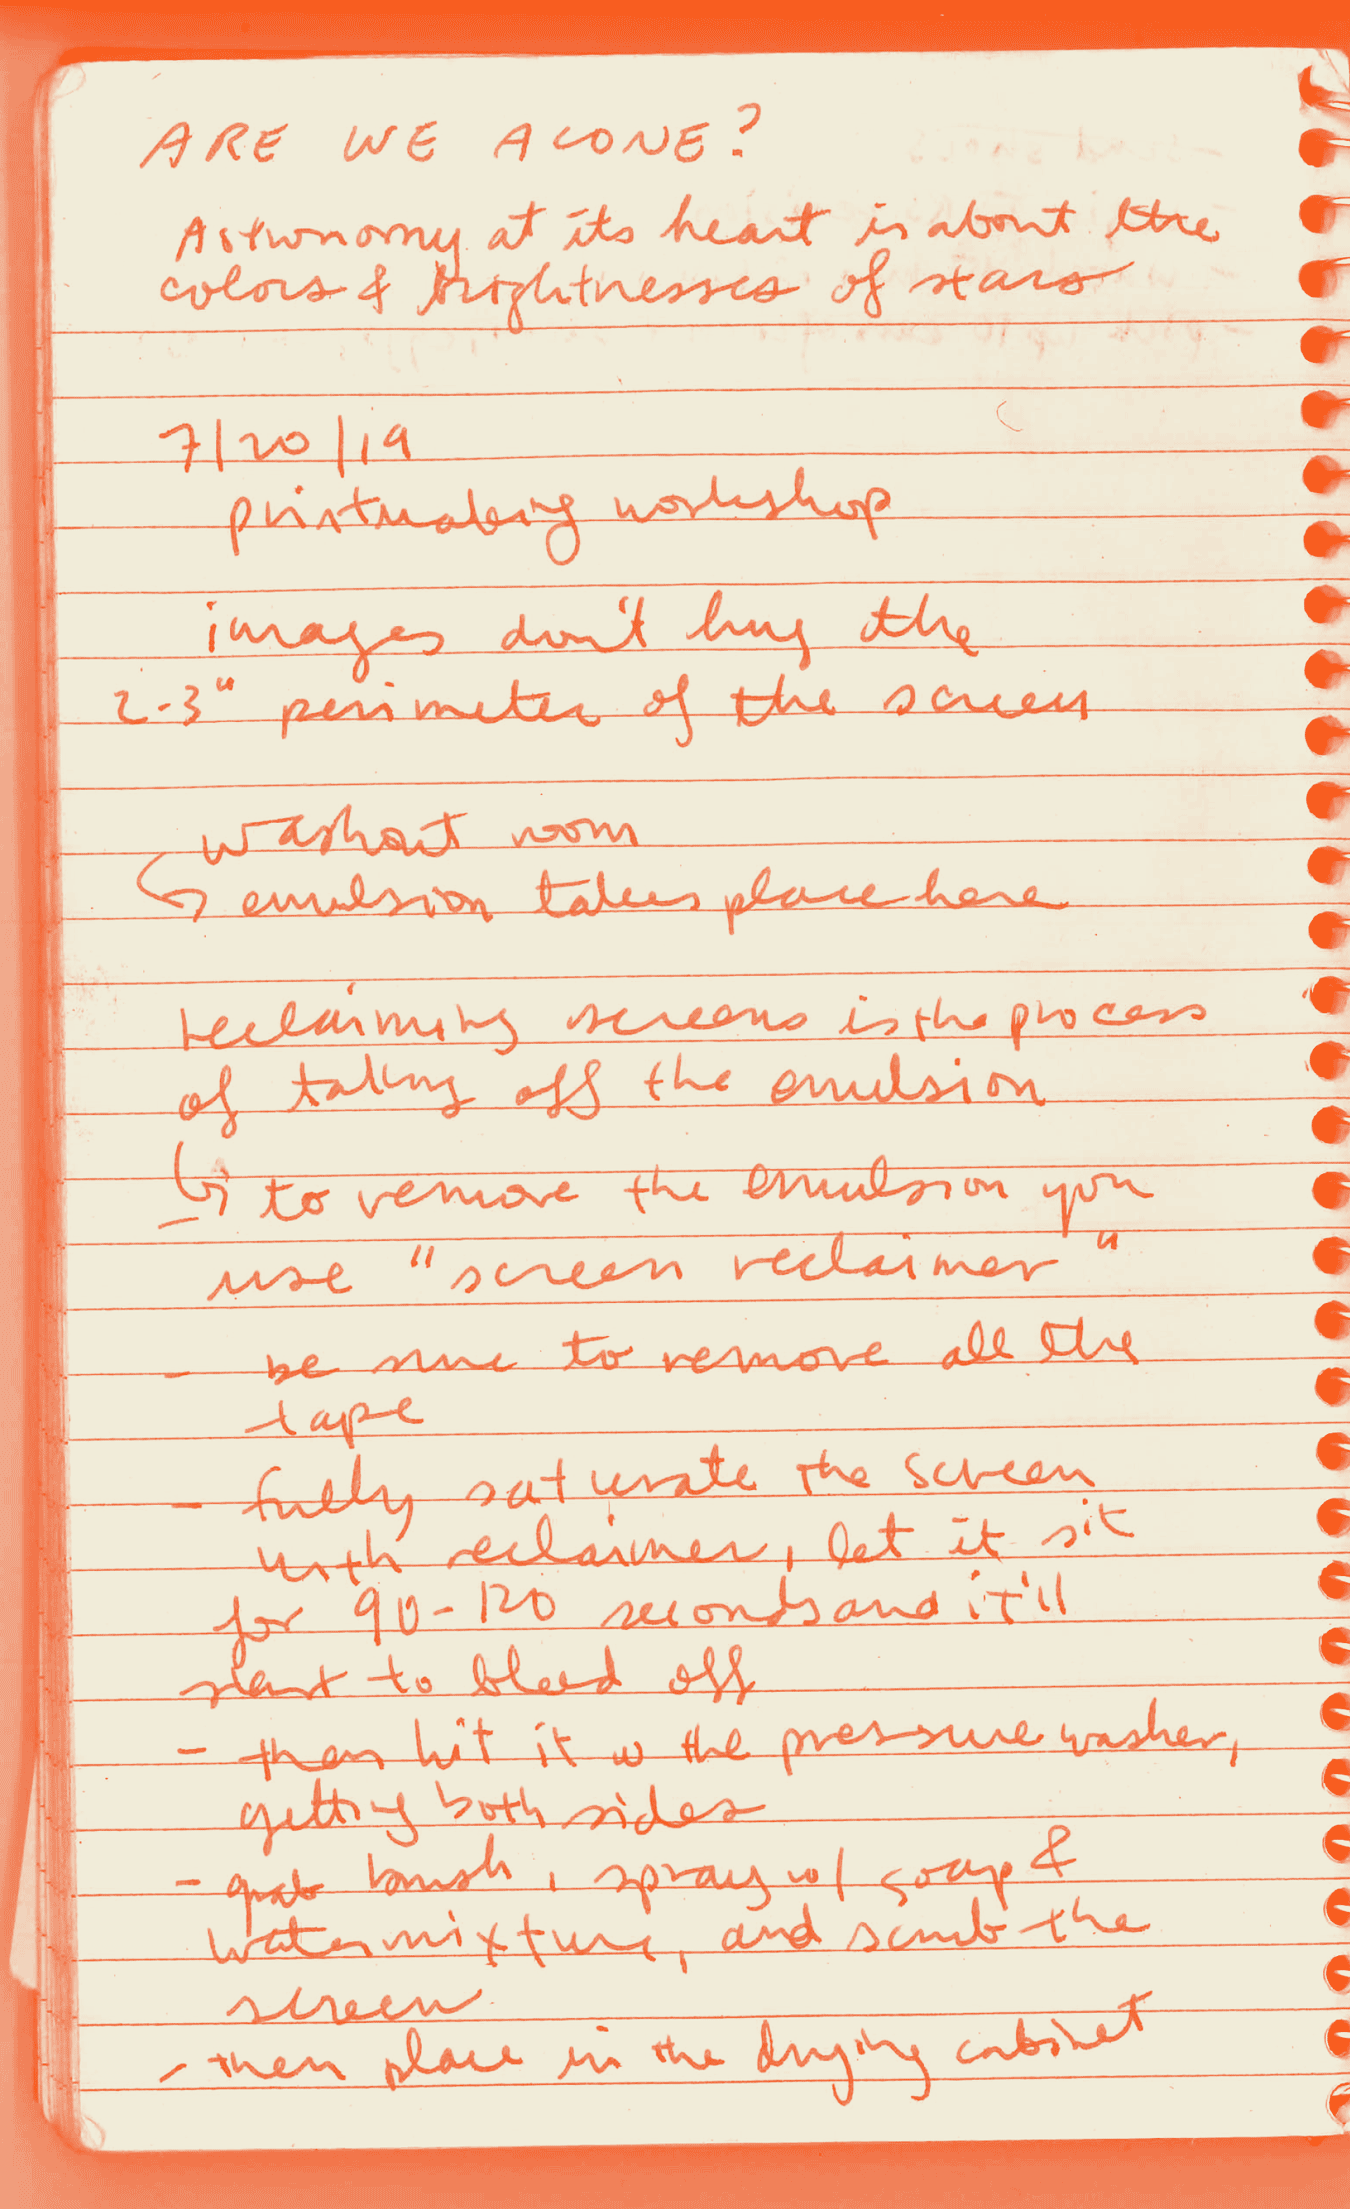 ARE WE ALONE?
Astronomy at its heart is about the
colors & brightnesses of stars
7/20/19
printmaking workshop
images don't hug the
2-3" perimeter of the screen
washout room
emulsion takes place here
reclaiming screens is the process
of taking off the emulsion
to remove the emulsion you
use "screen reclaimer"
- be sure to remove all the
tape
- fully saturate the screen
with reclaimer, let it sit
for 90-120 seconds and it'll
start to bleed off
- then hit it w the pressure washer,
getting both sides
- grab brush, spray w/ soap &
water mixture, and scrub the
screen
- then place in the drying cabinet